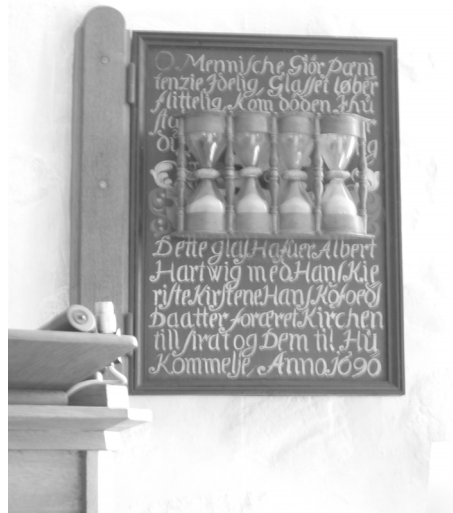 O Mennische Giör Pæni
tenzie Idelig, Glasset løber
flittelig, Kom döden Ihü
Dette glas Hafuer Albert
Hartwig med Hans Kie
riste Kirstene Hans Kofoeds
Daatter foræret Kirchen
till sirat og Dem til Hü
Kommelse, Anno 1690